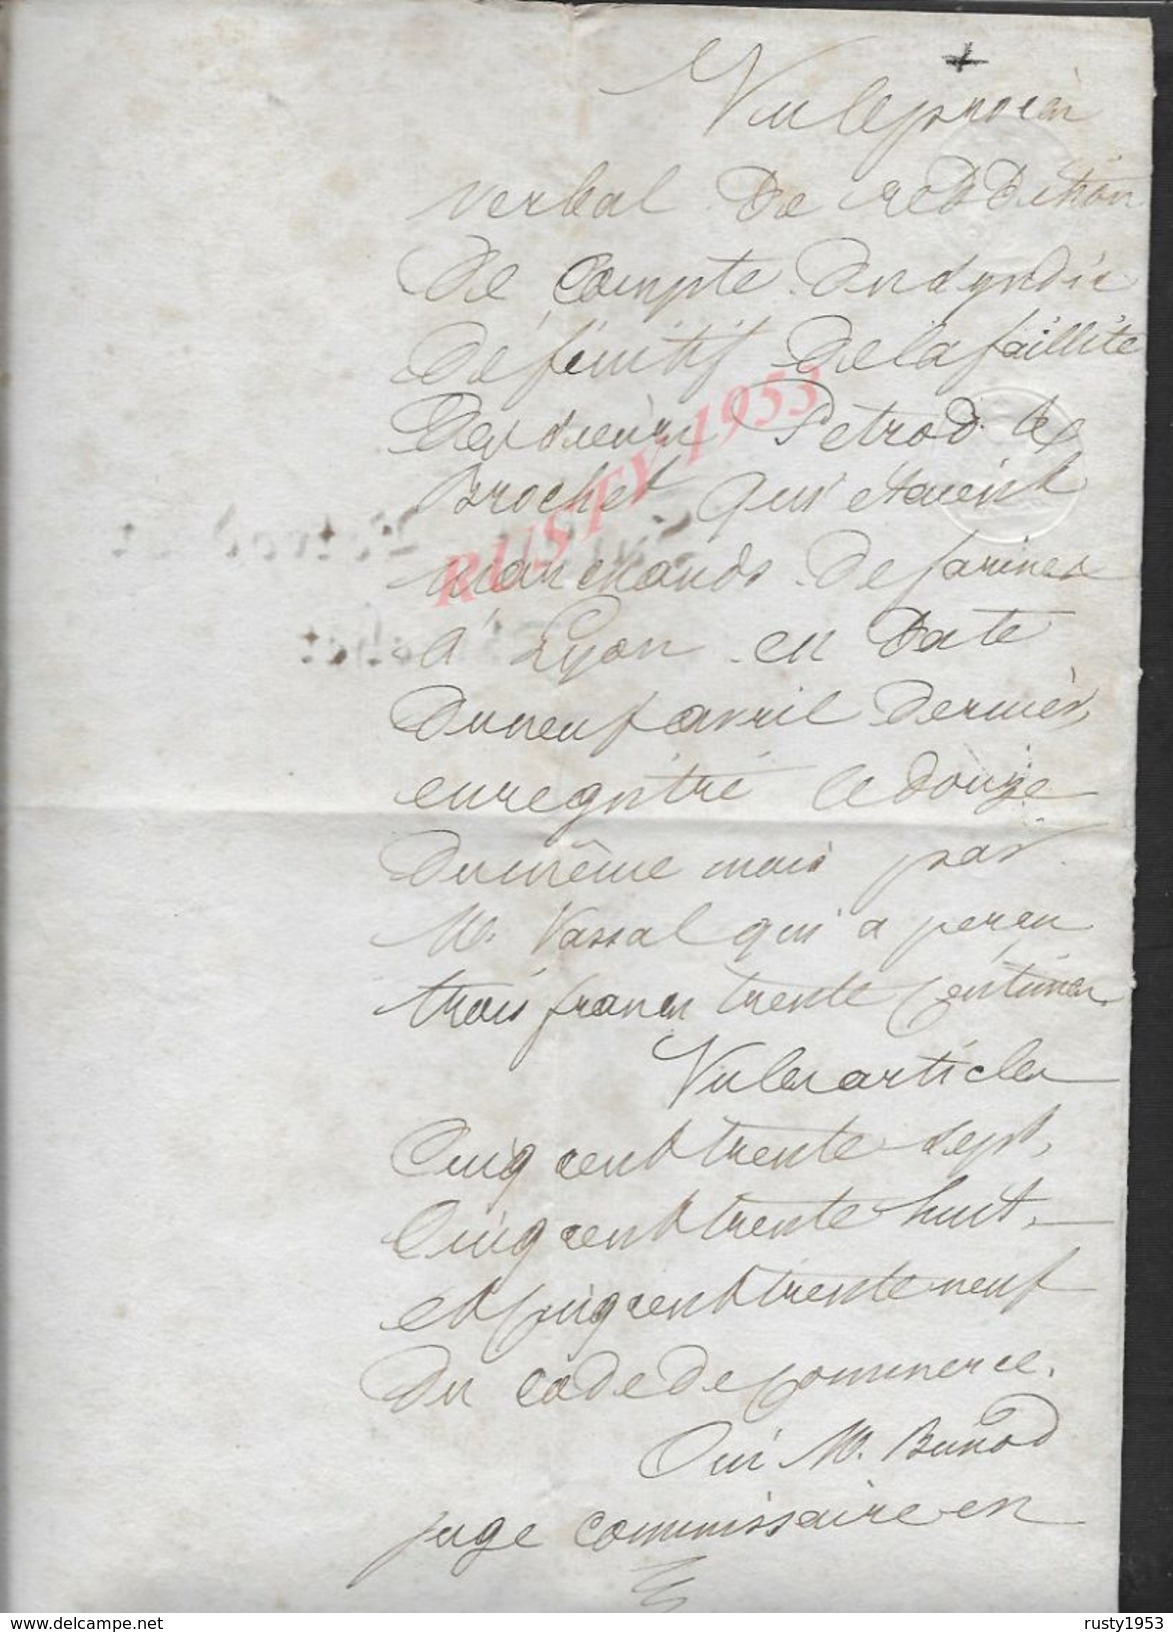 Vu le procès
verbal de reddition
de compte du syndic
définitif de la faillite
des sieurs Petrod &
Brochet qui étaient
marchands de farines
à Lyon en date
du neuf avril dernier,
enregistré le douze
du même mois par
M. Vassal qui a perçu
trois francs trente centimes.
Vu les articles
Cinq cent trente sept,
Cinq cent trente huit,
et cinq cent trente neuf
du code de commerce.
Oui M. Bunod
juge commissaire en
RUSTY 1953
www.delcampe.net
rusty1953